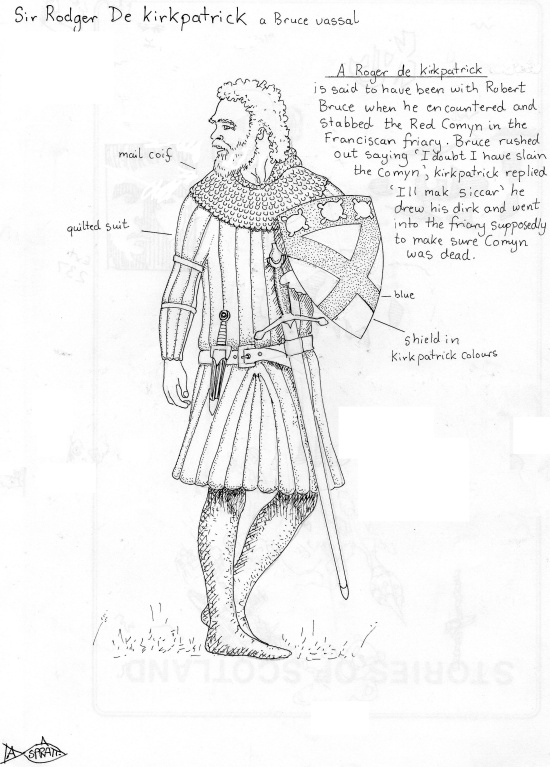 Sir Rodger De kirkpatrick a Bruce vassal
A Roger de kirkpatrick
is said to have been with Robert
Bruce when he encountered and
stabbed the Red Comyn in the
Franciscan friary. Bruce rushed
out saying 'I doubt I have slain
the Comyn', kirkpatrick replied
'I'll mak siccar' he
drew his dirk and went
into the friary supposedly
to make sure Comyn
was dead.
mail coif
quilted suit
blue
shield in
kirkpatrick colours
STORIES OF SCOTLAND
A SPRATT